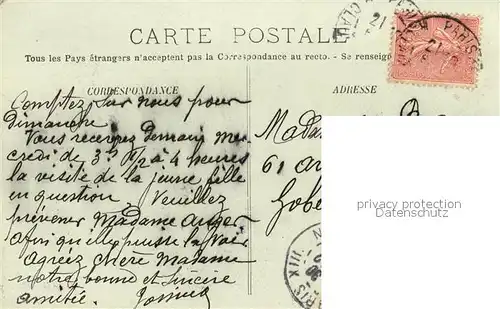 CARTE POSTALE
Tous les Pays étrangers n'acceptent pas la Correspondance au recto. - Se renseigne
CORRESPONDANCE
Comptez sur nous pour
dimanche
Vous recevrez demain mer
credi de 3h 1/2 à 4 heures
la visite de la jeune fille
en question. Veuillez
prévenir Madame Auger
afin qu'elle puisse la voir
Agréez chère Madame
notre bonne et sincère
amitié.
ADRESSE
Madam
61 av
Gobe
privacy protection
Datenschutz
PARIS